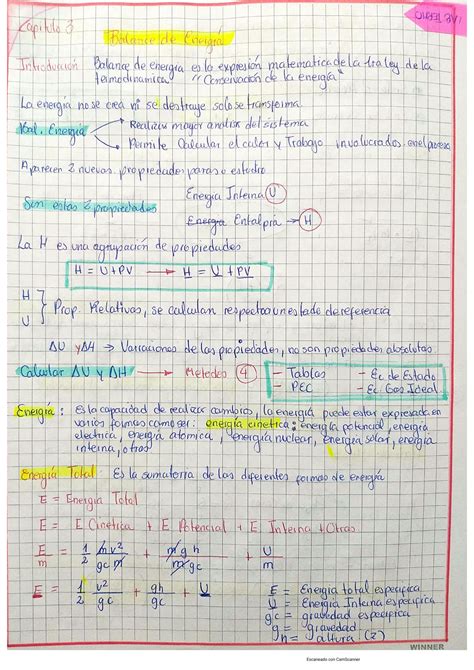 Capitulo 3
Balance de Energía
Introducción Balance de energía es la expresión matematica de la 1ra ley de la
termodinamica "Conservación de la energía"
La energía no se crea ni se destruye solo se transforma
Bal. Energía
Realizar mayor analisis del sistema
Permite Calcular el calor y Trabajo involucrados en el proceso
Aparecen 2 nuevas propiedades para su estudio
Son estas 2 propiedades
Energia Interna U
Energia Entalpia → H
La H es una agrupación de propiedades
H = U + PV → H = U + PV
H
U } Prop. Relativas, se calculan respecto a un estado de referencia
ΔU y ΔH → Variaciones de las propiedades, no son propiedades absolutas
Calcular ΔU y ΔH → Metodos 4
- Tablas - Ec de Estado
- PEC - Ec Gas Ideal
Energía : Es la capacidad de realizar cambios, la energía puede estar expresada en
varias formas como ser: energía cinetica, energía potencial, energía
electrica, energía atomica, energía nuclear, energía solar, energía
interna, otras
Energia Total: Es la sumatoria de las diferentes formas de energía
E = Energia Total
E = E Cinetica + E Potencial + E Interna + Otras
E/m = 1/2 m v²/gc m + m g h/m gc + U/m
E = 1/2 v²/gc + gh/gc + U
E = Energía total especifica
U = Energía Interna especifica
gc = gravedad especifica
g = gravedad
h = altura (z)
WINNER
Escaneado con CamScanner